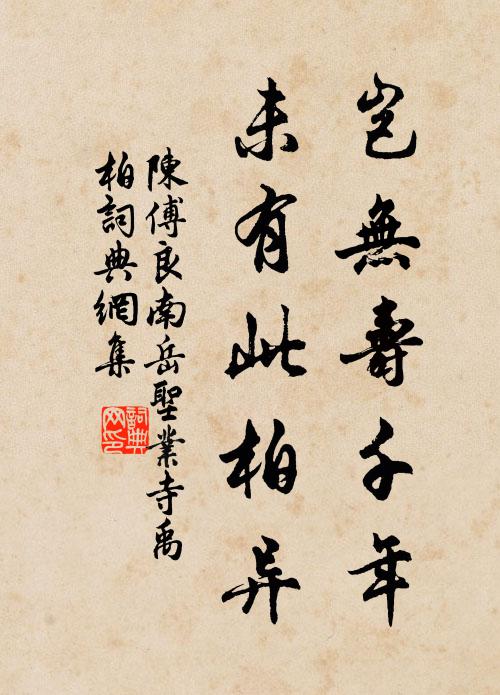 豈無壽千年
未有此柏异
陳傅良南岳聖業寺禹
柏詞典網集
詞典
网印